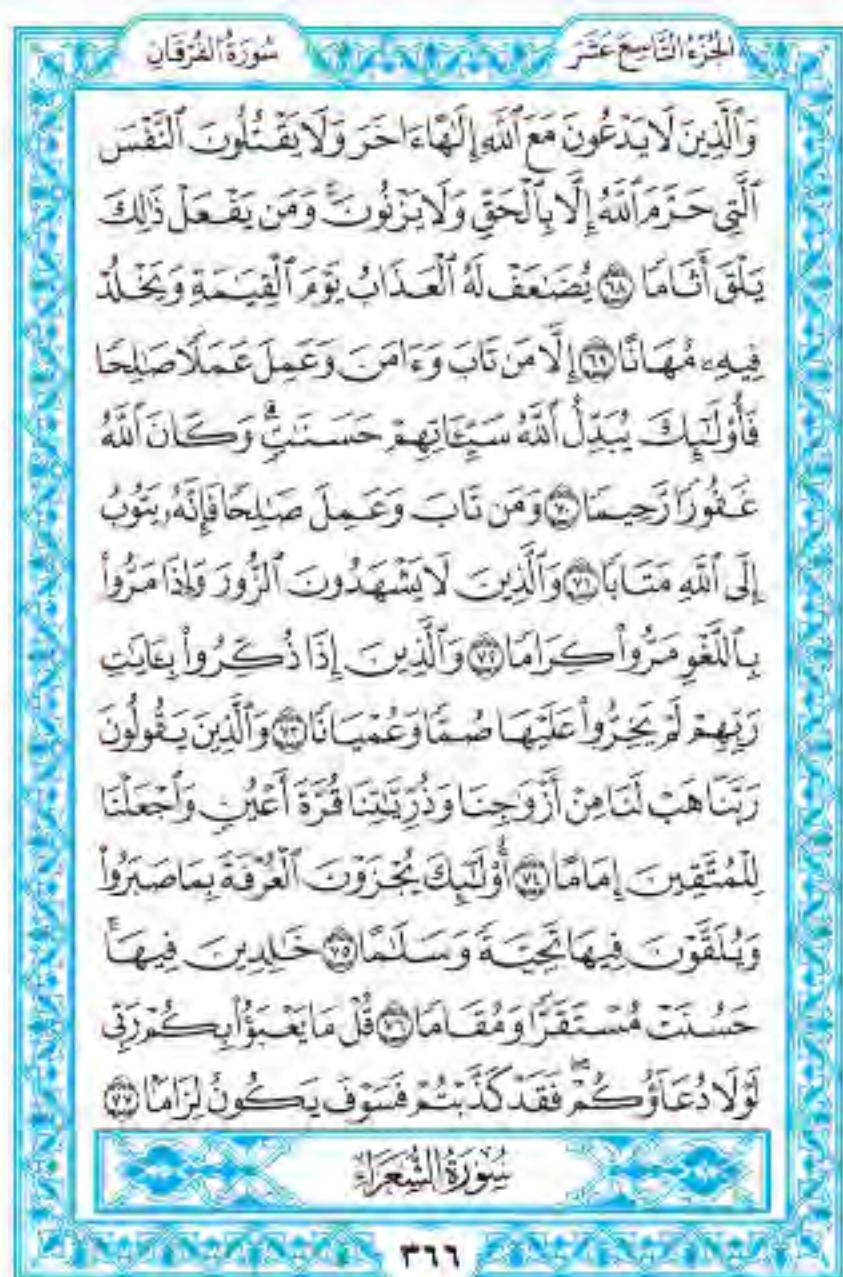 الجُزْءُ التَّاسِعَ عَشَرَ
سُورَةُ الفُرْقَانِ
وَٱلَّذِينَ لَا يَدْعُونَ مَعَ ٱللَّهِ إِلَٰهًا ءَاخَرَ وَلَا يَقْتُلُونَ ٱلنَّفْسَ
ٱلَّتِي حَرَّمَ ٱللَّهُ إِلَّا بِٱلْحَقِّ وَلَا يَزْنُونَۚ وَمَن يَفْعَلْ ذَٰلِكَ
يَلْقَ أَثَامًا ٦٨ يُضَٰعَفْ لَهُ ٱلْعَذَابُ يَوْمَ ٱلْقِيَٰمَةِ وَيَخْلُدْ
فِيهِۦ مُهَانًا ٦٩ إِلَّا مَن تَابَ وَءَامَنَ وَعَمِلَ عَمَلًا صَٰلِحًا
فَأُوْلَٰٓئِكَ يُبَدِّلُ ٱللَّهُ سَيِّـَٔاتِهِمْ حَسَنَٰتٍۗ وَكَانَ ٱللَّهُ
غَفُورًا رَّحِيمًا ٧٠ وَمَن تَابَ وَعَمِلَ صَٰلِحًا فَإِنَّهُۥ يَتُوبُ
إِلَى ٱللَّهِ مَتَابًا ٧١ وَٱلَّذِينَ لَا يَشْهَدُونَ ٱلزُّورَ وَإِذَا مَرُّواْ
بِٱللَّغْوِ مَرُّواْ كِرَامًا ٧٢ وَٱلَّذِينَ إِذَا ذُكِّرُواْ بِـَٔايَٰتِ
رَبِّهِمْ لَمْ يَخِرُّواْ عَلَيْهَا صُمًّا وَعُمْيَانًا ٧٣ وَٱلَّذِينَ يَقُولُونَ
رَبَّنَا هَبْ لَنَا مِنْ أَزْوَٰجِنَا وَذُرِّيَّٰتِنَا قُرَّةَ أَعْيُنٍ وَٱجْعَلْنَا
لِلْمُتَّقِينَ إِمَامًا ٧٤ أُوْلَٰٓئِكَ يُجْزَوْنَ ٱلْغُرْفَةَ بِمَا صَبَرُواْ
وَيُلَقَّوْنَ فِيهَا تَحِيَّةً وَسَلَٰمًا ٧٥ خَٰلِدِينَ فِيهَاۚ
حَسُنَتْ مُسْتَقَرًّا وَمُقَامًا ٧٦ قُلْ مَا يَعْبَؤُاْ بِكُمْ رَبِّي
لَوْلَا دُعَآؤُكُمْۖ فَقَدْ كَذَّبْتُمْ فَسَوْفَ يَكُونُ لِزَامًا ٧٧
سُورَةُ الشُّعَرَاءِ
٣٦٦